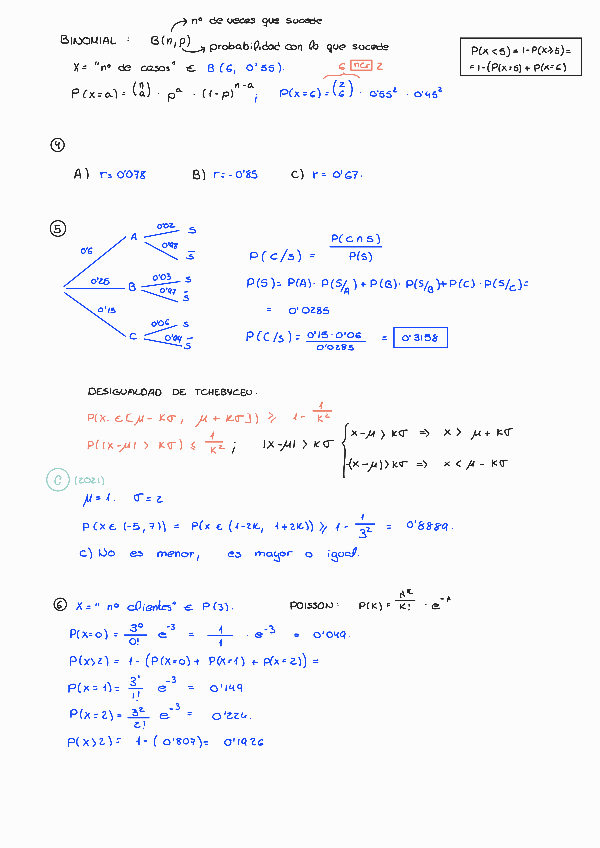 nº de veces que sucede
BINOMIAL : B(n,p)
probabilidad con lo que sucede
P(X<5) = 1-P(X≥5)=
= 1-(P(X=5) + P(X=6)
X = "nº de casos" ∈ B(6, 0'55).
6 nCr 2
P(x=a) = (n a) · pᵃ · (1-p)ⁿ⁻ᵃ; P(x=6) = (2 6) · 0'55² · 0'45²
4
A) r= 0'078 B) r= -0'85 C) r = 0'67.
5
0'6 A 0'02 S
0'98 S̅
0'25 B 0'03 S
0'97 S̅
0'15 C 0'06 S
0'94 S̅
P(C/S) = P(C∩S) / P(S)
P(S)= P(A)· P(S/A) + P(B)· P(S/B)+P(C)·P(S/C)=
= 0'0285
P(C/S) = 0'15·0'06 / 0'0285 = 0'3158
DESIGUALDAD DE TCHEBYCEU.
P(X ∈ [μ - Kσ, μ + Kσ]) ≥ 1 - 1/K²
P(|X-μ| > Kσ) ≤ 1/K² ; |X-μ| > Kσ
X-μ > Kσ ⇒ X > μ + Kσ
-(X-μ) > Kσ ⇒ X < μ - Kσ
C (2021)
μ = 1. σ = 2
P(X ∈ (-5, 7)) = P(X ∈ (1-2K, 1+2K)) ≥ 1 - 1/3² = 0'8889.
c) No es menor, es mayor o igual.
6 X = "nº clientes" ∈ P(3). POISSON: P(K) = λᴷ/K! · e^-λ
P(X=0) = 3⁰/0! e⁻³ = 1/1 · e⁻³ = 0'049.
P(X>2) = 1- (P(X=0) + P(X=1) + P(X=2)) =
P(X=1) = 3¹/1! e⁻³ = 0'149
P(X=2) = 3²/2! e⁻³ = 0'224.
P(X>2) = 1-( 0'807)= 0'1926